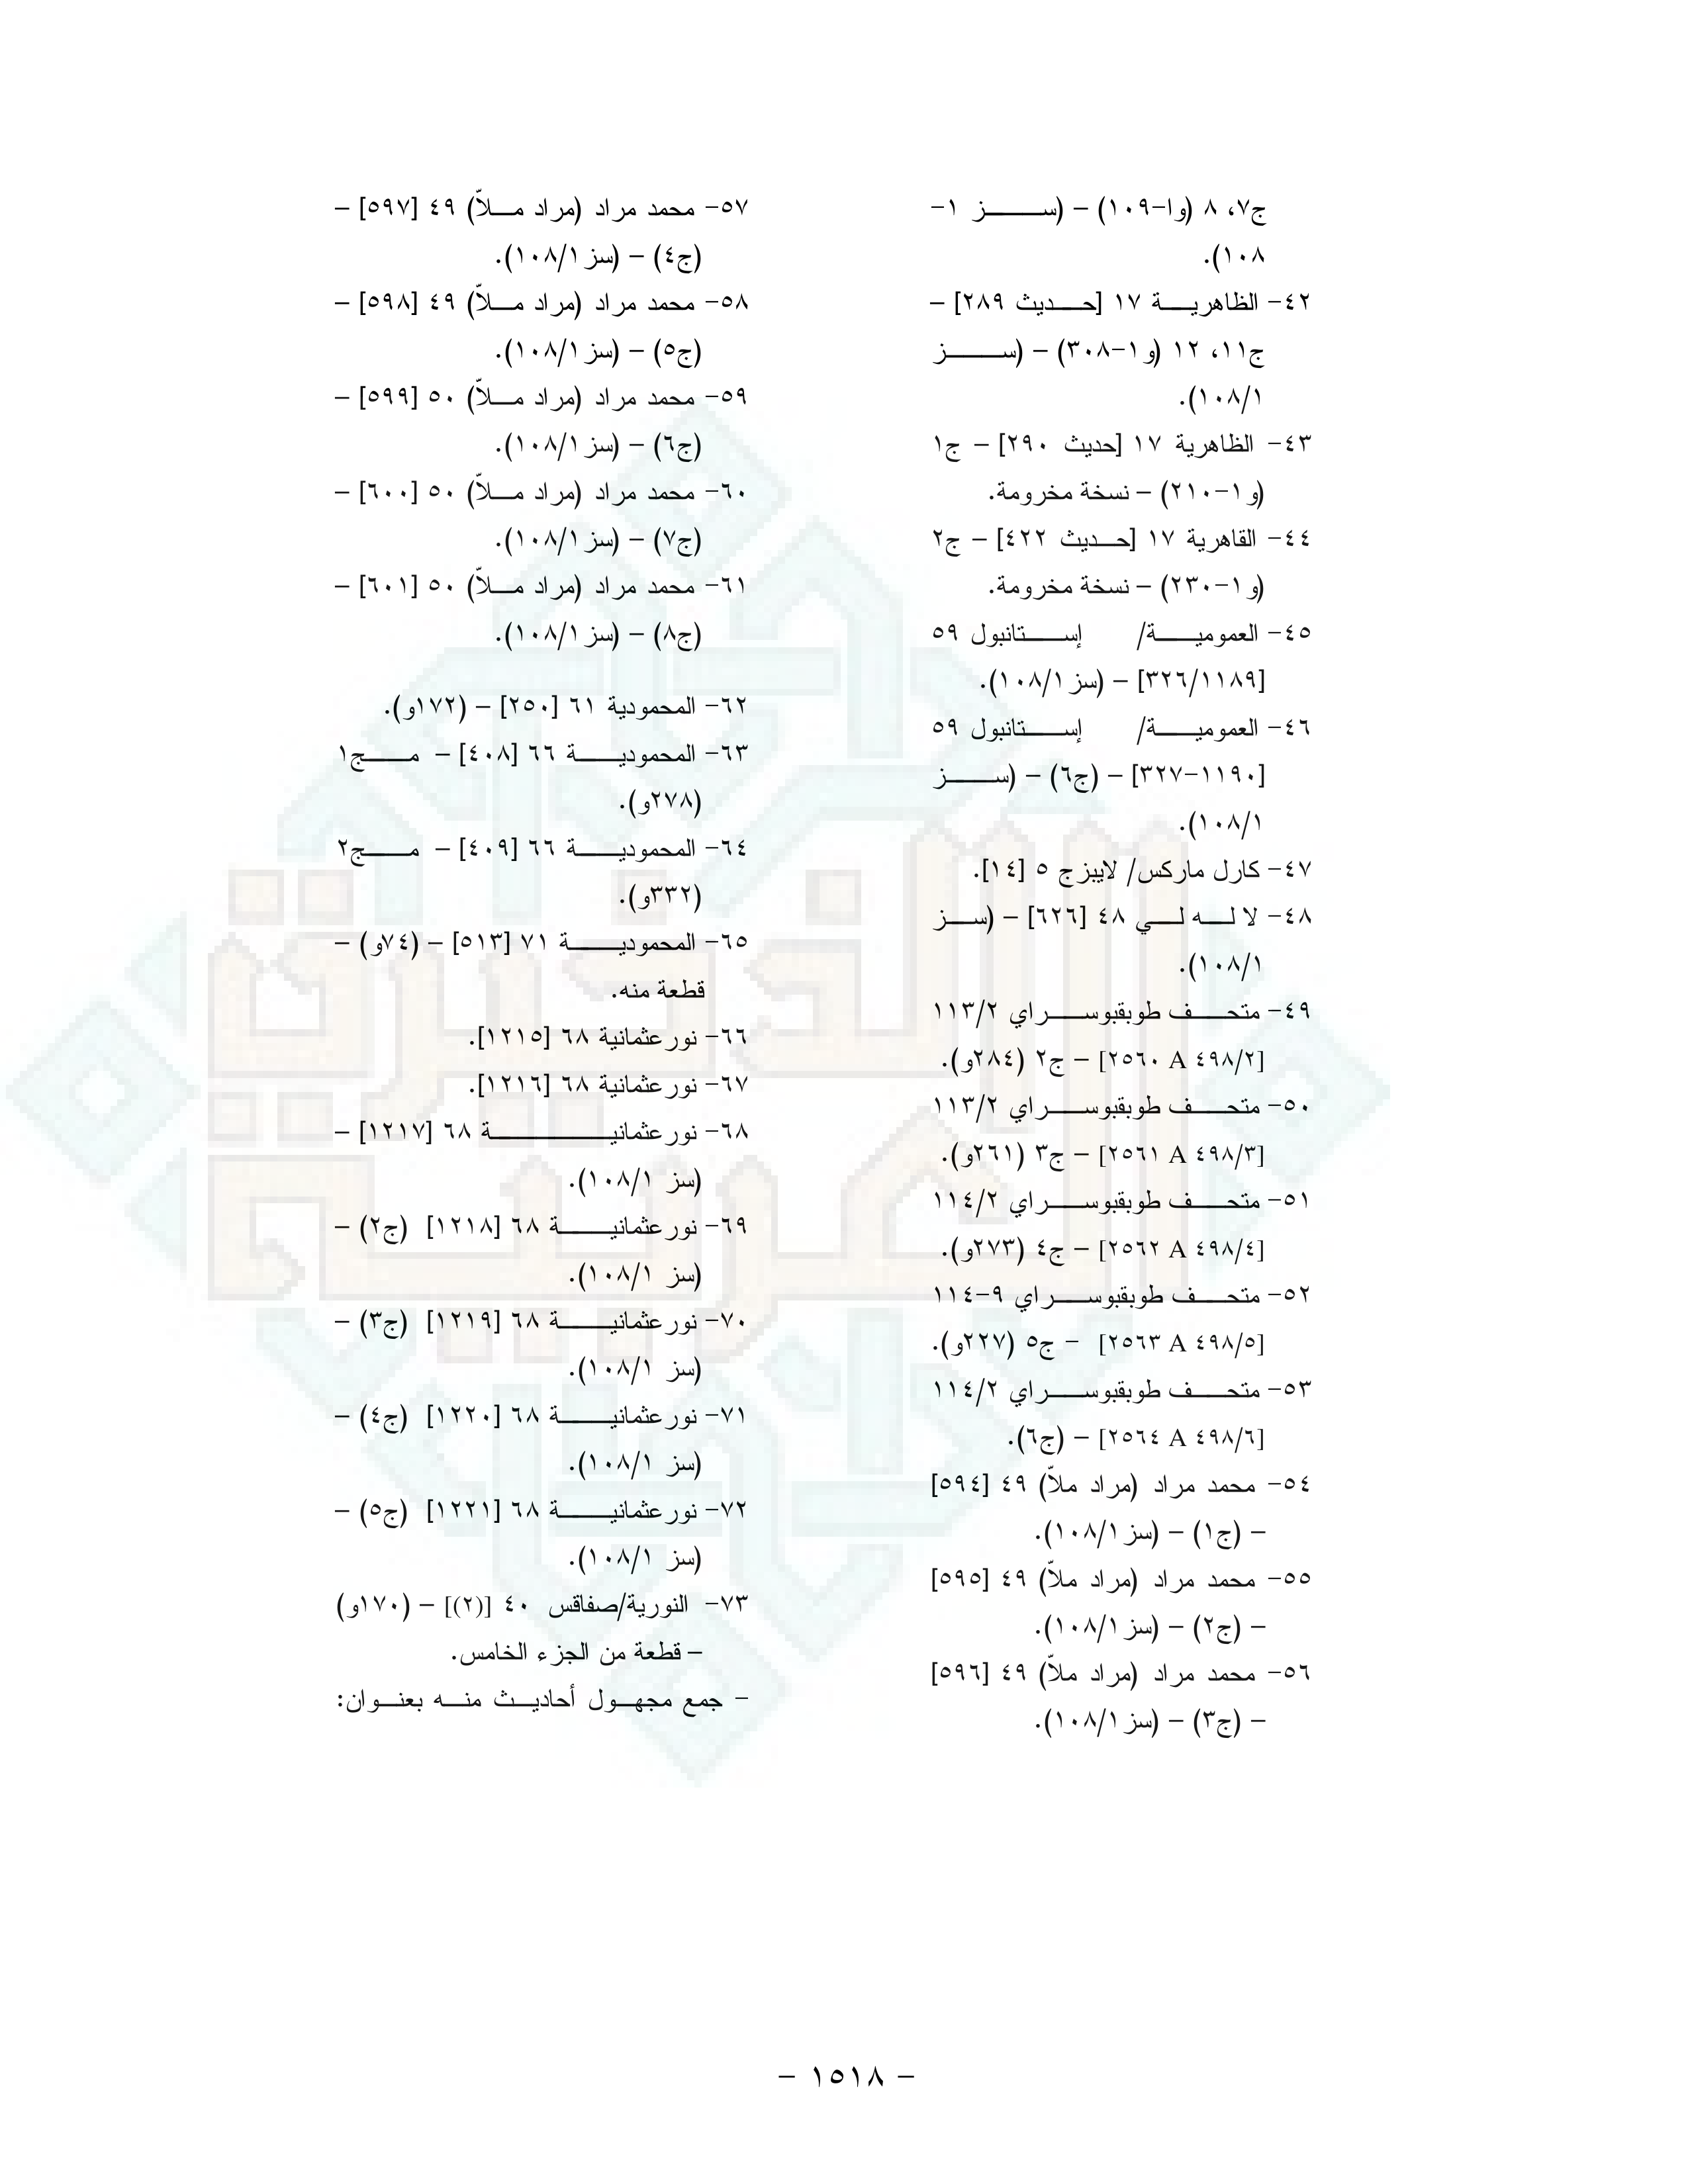 ج٧، ٨ (وا-١٠٩) – (سز ١-
١٠٨).
٤٢- الظاهرية ١٧ [حديث ٢٨٩] –
ج١١، ١٢ (و١-٣٠٨) – (سز
١٠٨/١).
٤٣- الظاهرية ١٧ [حديث ٢٩٠] – ج١
(و١-٢١٠) – نسخة مخرومة.
٤٤- القاهرية ١٧ [حديث ٤٢٢] – ج٢
(و١-٢٣٠) – نسخة مخرومة.
٤٥- العمومية/ إستانبول ٥٩
[٣٢٦/١١٨٩] – (سز١٠٨/١).
٤٦- العمومية/ إستانبول ٥٩
[١١٩٠-٣٢٧] – (ج٦) – (سز
١٠٨/١).
٤٧- كارل ماركس/ لايبزج ٥ [١٤].
٤٨- لا له لي ٤٨ [٦٢٦] – (سز
١٠٨/١).
٤٩- متحف طوبقبوسراي ١١٣/٢
[٢٥٦٠ A ٤٩٨/٢] – ج٢ (٢٨٤و).
٥٠- متحف طوبقبوسراي ١١٣/٢
[٢٥٦١ A ٤٩٨/٣] – ج٣ (٢٦١و).
٥١- متحف طوبقبوسراي ١١٤/٢
[٢٥٦٢ A ٤٩٨/٤] – ج٤ (٢٧٣و).
٥٢- متحف طوبقبوسراي ٩-١١٤
[٢٥٦٣ A ٤٩٨/٥] – ج٥ (٢٢٧و).
٥٣- متحف طوبقبوسراي ١١٤/٢
[٢٥٦٤ A ٤٩٨/٦] – (ج٦).
٥٤- محمد مراد (مراد ملاّ) ٤٩ [٥٩٤]
– (ج١) – (سز١٠٨/١).
٥٥- محمد مراد (مراد ملاّ) ٤٩ [٥٩٥]
– (ج٢) – (سز١٠٨/١).
٥٦- محمد مراد (مراد ملاّ) ٤٩ [٥٩٦]
– (ج٣) – (سز١٠٨/١).
٥٧- محمد مراد (مراد ملاّ) ٤٩ [٥٩٧] –
(ج٤) – (سز١٠٨/١).
٥٨- محمد مراد (مراد ملاّ) ٤٩ [٥٩٨] –
(ج٥) – (سز١٠٨/١).
٥٩- محمد مراد (مراد ملاّ) ٥٠ [٥٩٩] –
(ج٦) – (سز١٠٨/١).
٦٠- محمد مراد (مراد ملاّ) ٥٠ [٦٠٠] –
(ج٧) – (سز١٠٨/١).
٦١- محمد مراد (مراد ملاّ) ٥٠ [٦٠١] –
(ج٨) – (سز١٠٨/١).
٦٢- المحمودية ٦١ [٢٥٠] – (١٧٢و).
٦٣- المحمودية ٦٦ [٤٠٨] – مج١
(٢٧٨و).
٦٤- المحمودية ٦٦ [٤٠٩] – مج٢
(٣٣٢و).
٦٥- المحمودية ٧١ [٥١٣] – (٧٤و) –
قطعة منه.
٦٦- نورعثمانية ٦٨ [١٢١٥].
٦٧- نورعثمانية ٦٨ [١٢١٦].
٦٨- نورعثمانية ٦٨ [١٢١٧] –
(سز ١٠٨/١).
٦٩- نورعثمانية ٦٨ [١٢١٨] (ج٢) –
(سز ١٠٨/١).
٧٠- نورعثمانية ٦٨ [١٢١٩] (ج٣) –
(سز ١٠٨/١).
٧١- نورعثمانية ٦٨ [١٢٢٠] (ج٤) –
(سز ١٠٨/١).
٧٢- نورعثمانية ٦٨ [١٢٢١] (ج٥) –
(سز ١٠٨/١).
٧٣- النورية/صفاقس ٤٠ [(٢)] – (١٧٠و)
– قطعة من الجزء الخامس.
- جمع مجهول أحاديث منه بعنوان:
– ١٥١٨ –
الذخيرة
العربية